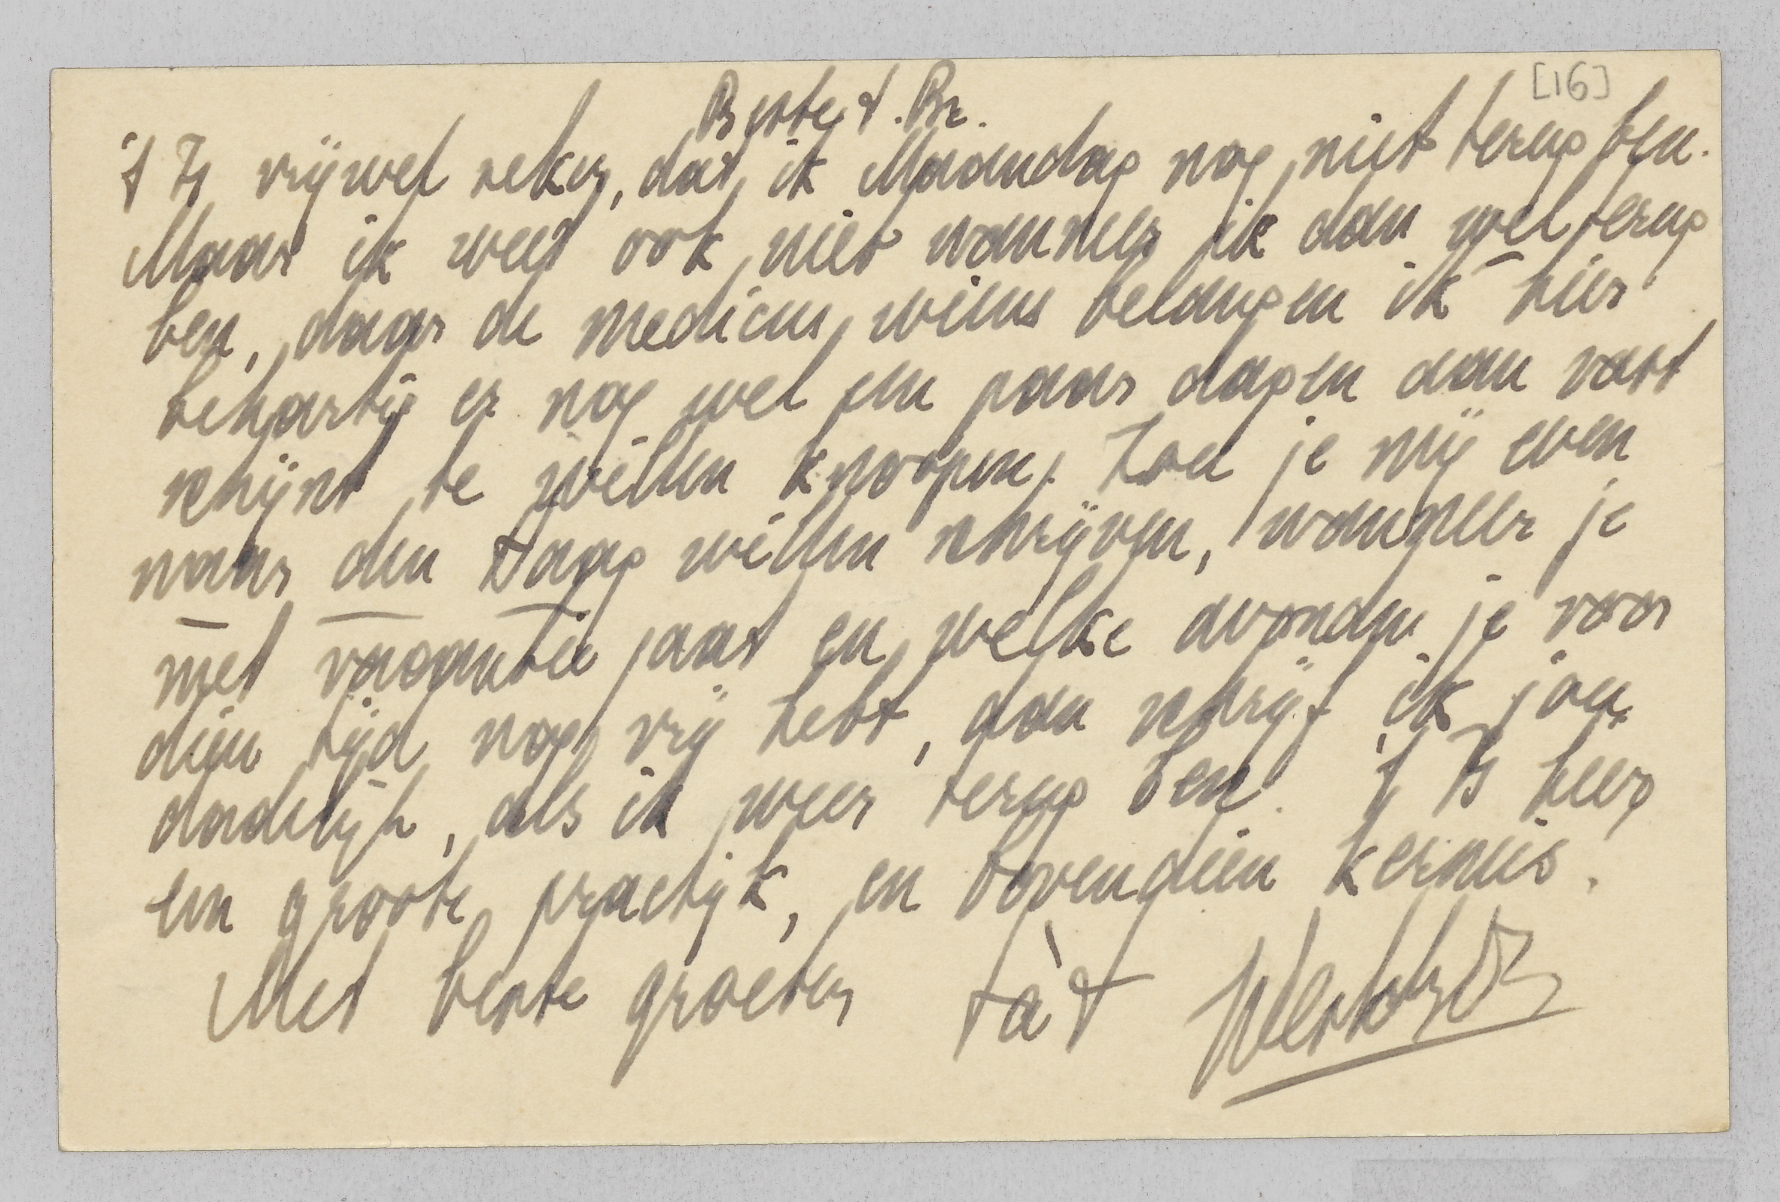 [16]
Beste d. Br.
't Is vrijwel zeker, dat ik Maandag nog niet terug ben.
Maar ik weet ook niet wanneer ik dan wel terug
ben, daar de medicus, wiens belangen ik hier
behartig er nog wel een paar dagen aan vast
schijnt te willen knoopen. Zou je mij even
naar den Haag willen schrijven, wanneer je
met vacantie gaat en welke avonden je voor
dien tijd nog vrij hebt, dan schrijf ik jou
dadelijk, als ik weer terug ben. 't Is hier
een groote practijk, en bovendien kermis.
Met beste groeten tàt